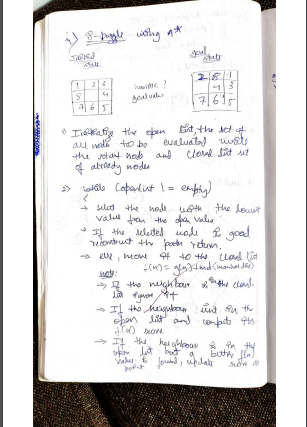 i) 8-puzzle using A*
Initial state
Goal state
1 2 3
8 4
7 6 5
2 8 1
4 3
7 6 5
heuristic ?
goal value
1) Initialize the open list, the set of
all nodes to be evaluated
the start node and closed list set
of already nodes
2) while (openlist != empty)
→ select the node with the lowest
value from the open value
→ If the selected node is goal
reconstruct the path return.
→ else, move it to the closed list
f(n) = g(n) + h(n)
note:
→ If the neighbour is in the closed
list ignore it
→ If the neighbour isnt in the
open list and compute its
f(n) score
→ If the neighbour is in the
open list but a better f(n)
value is found, update score &